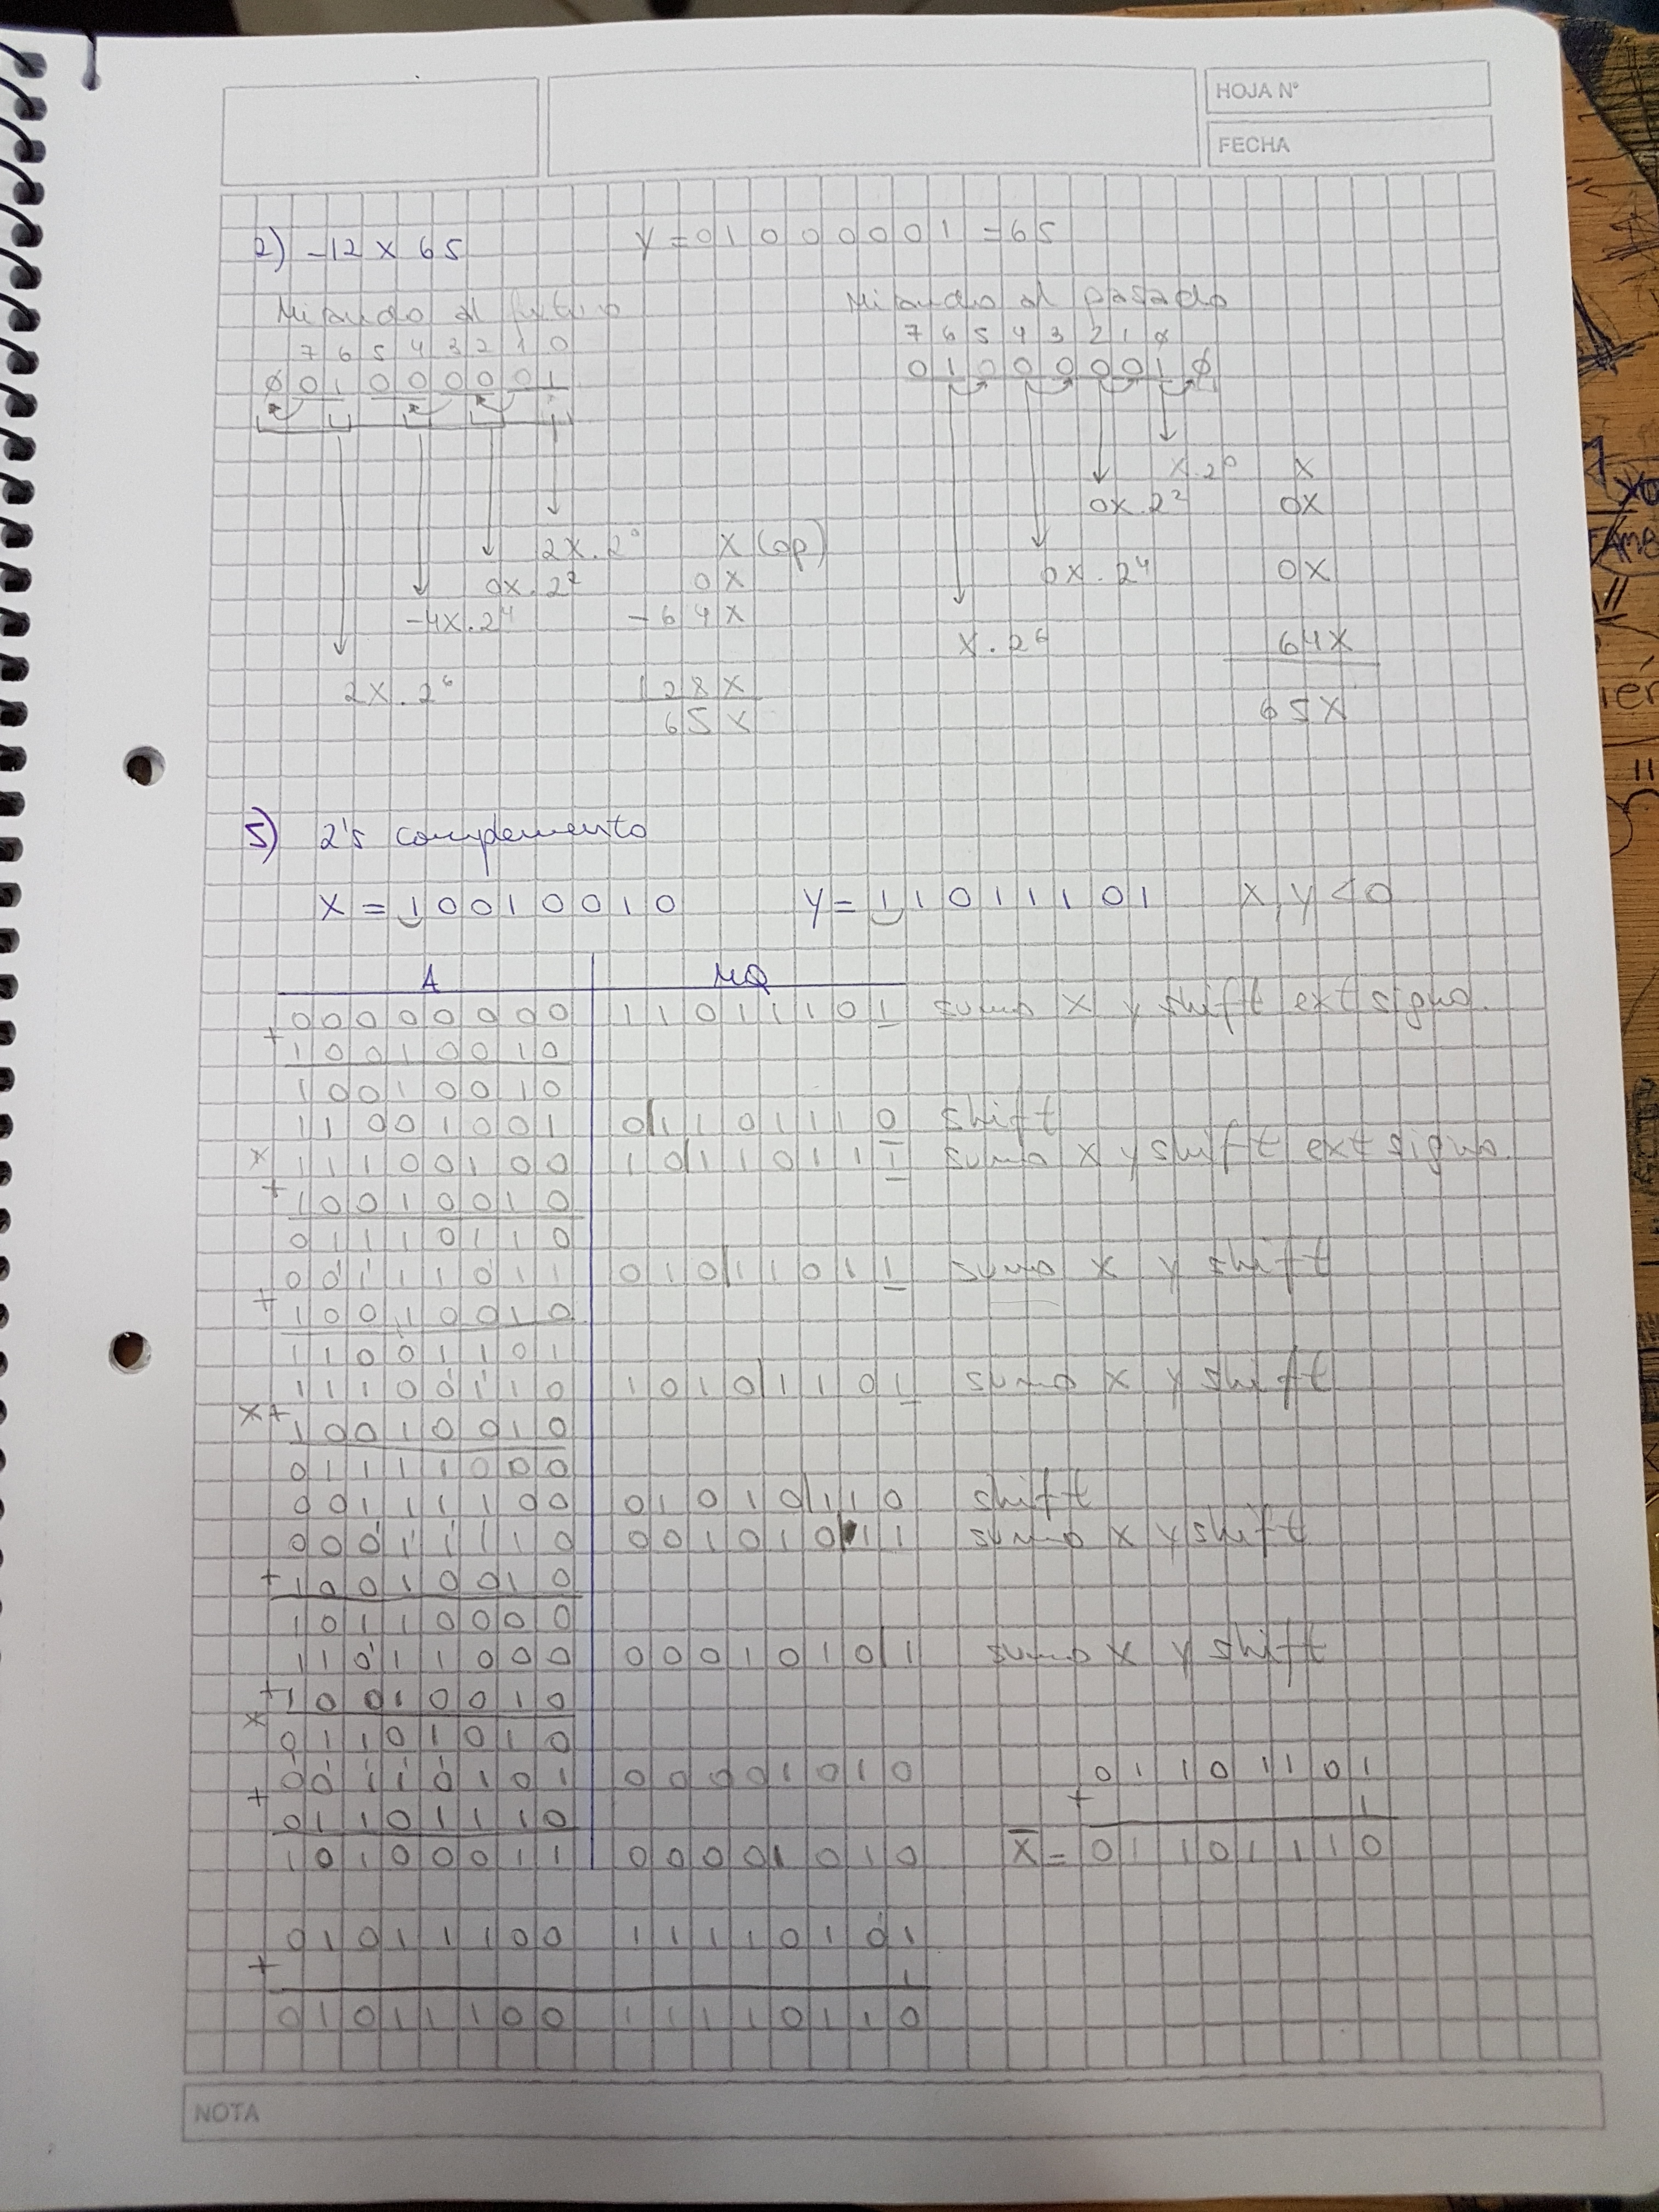 HOJA N°
FECHA
2) -12 x 65    Y = 0 1 0 0 0 0 0 1 = 65
Mirando al futuro    Mirando al pasado
7 6 5 4 3 2 1 0    7 6 5 4 3 2 1 0
0 0 1 0 0 0 0 0 1    0 1 0 0 0 0 0 1 0
x.2⁰    x
0x.2²    0x
2x.2⁰    x (op)
0x.2²    0x    0x.2⁴    0x
-4x.2⁴    -64x
x.2⁶    64x
2x.2⁶    128x
65x    65x
5) 2's complemento
X = 1 0 0 1 0 0 1 0    Y = 1 1 0 1 1 1 0 1    X, Y < 0
A    MQ
0 0 0 0 0 0 0 0    1 1 0 1 1 1 0 1    sumo x y shift ext signo.
+ 1 0 0 1 0 0 1 0
1 0 0 1 0 0 1 0
1 1 0 0 1 0 0 1    0 1 1 0 1 1 1 0    shift
x 1 1 1 0 0 1 0 0    1 0 1 1 0 1 1 1    sumo x y shift ext signo.
+ 1 0 0 1 0 0 1 0
0 1 1 1 0 1 1 0
0 0 1 1 1 0 1 1    0 1 0 1 1 0 1 1    sumo x y shift
+ 1 0 0 1 0 0 1 0
1 1 0 0 1 1 0 1
1 1 1 0 0 1 1 0    1 0 1 0 1 1 0 1    sumo x y shift
x + 1 0 0 1 0 0 1 0
0 1 1 1 1 0 0 0
0 0 1 1 1 1 0 0    0 1 0 1 0 1 1 0    shift
0 0 0 1 1 1 1 0    0 0 1 0 1 0 1 1    sumo x y shift
+ 1 0 0 1 0 0 1 0
1 0 1 1 0 0 0 0
1 1 0 1 1 0 0 0    0 0 0 1 0 1 0 1    sumo x y shift
+ 1 0 0 1 0 0 1 0
x 0 1 1 0 1 0 1 0
0 0 1 1 0 1 0 1    0 0 0 0 1 0 1 0    0 1 1 0 1 1 0 1
+ 0 1 1 0 1 1 1 0    + 1
1 0 1 0 0 0 1 1    0 0 0 0 1 0 1 0    X̅ = 0 1 1 0 1 1 1 0
0 1 0 1 1 1 0 0    1 1 1 1 0 1 0 1
+ 1
0 1 0 1 1 1 0 0    1 1 1 1 0 1 1 0
NOTA